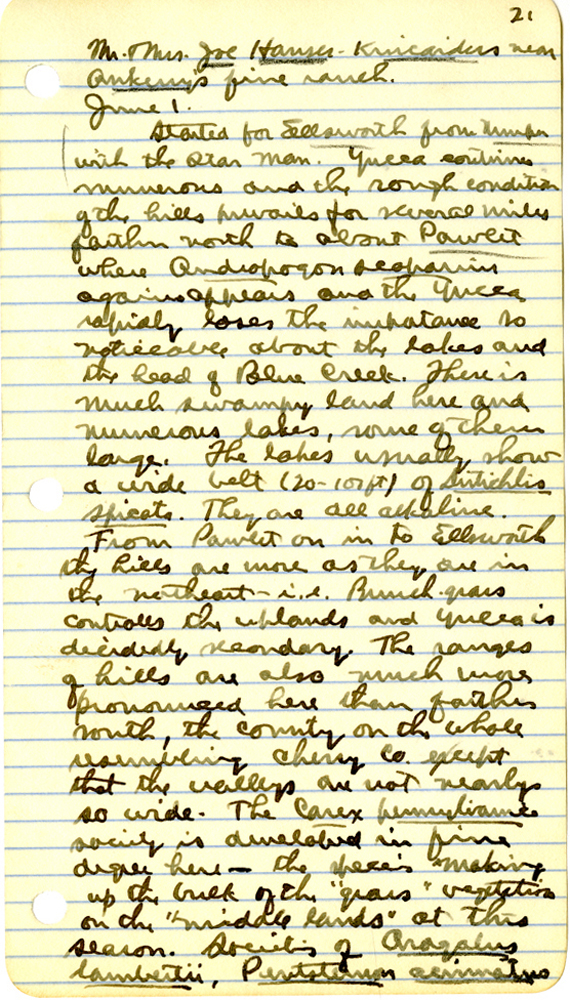 21
Mr. & Mrs. Joe Hanser - Kincaiders near
Ankeny's fine ranch.
June 1.
Started for Ellsworth from
with the star man. Yucca continues
numerous and the rough condition
of the hills prevails for several miles
farther north to about Pawlet
where Andropogon scoparius
again appears and the Yucca
rapidly loses the importance so
noticeable about the lakes and
the head of Blue Creek. There is
much swampy land here and
numerous lakes, some of them
large. The lakes usually show
a wide belt (20-100ft) of Distichlis
spicata. They are all alkaline.
From Pawlet on in to Ellsworth
the hills are more as they are in
the northeast - i.e. Bunch-grass
controlls the uplands and Yucca is
decidedly secondary. The ranges
of hills are also much more
pronounced here than farther
south, the country on the whole
resembling Cherry Co. except
that the valleys are not nearly
so wide. The Carex pennsylvanica
society is developed in fine
degree here - the species making
up the bulk of the "grass" vegetation
on the "middle lands" at this
season. Societies of Aragalus
lambertii, Pentstemon acuminatus